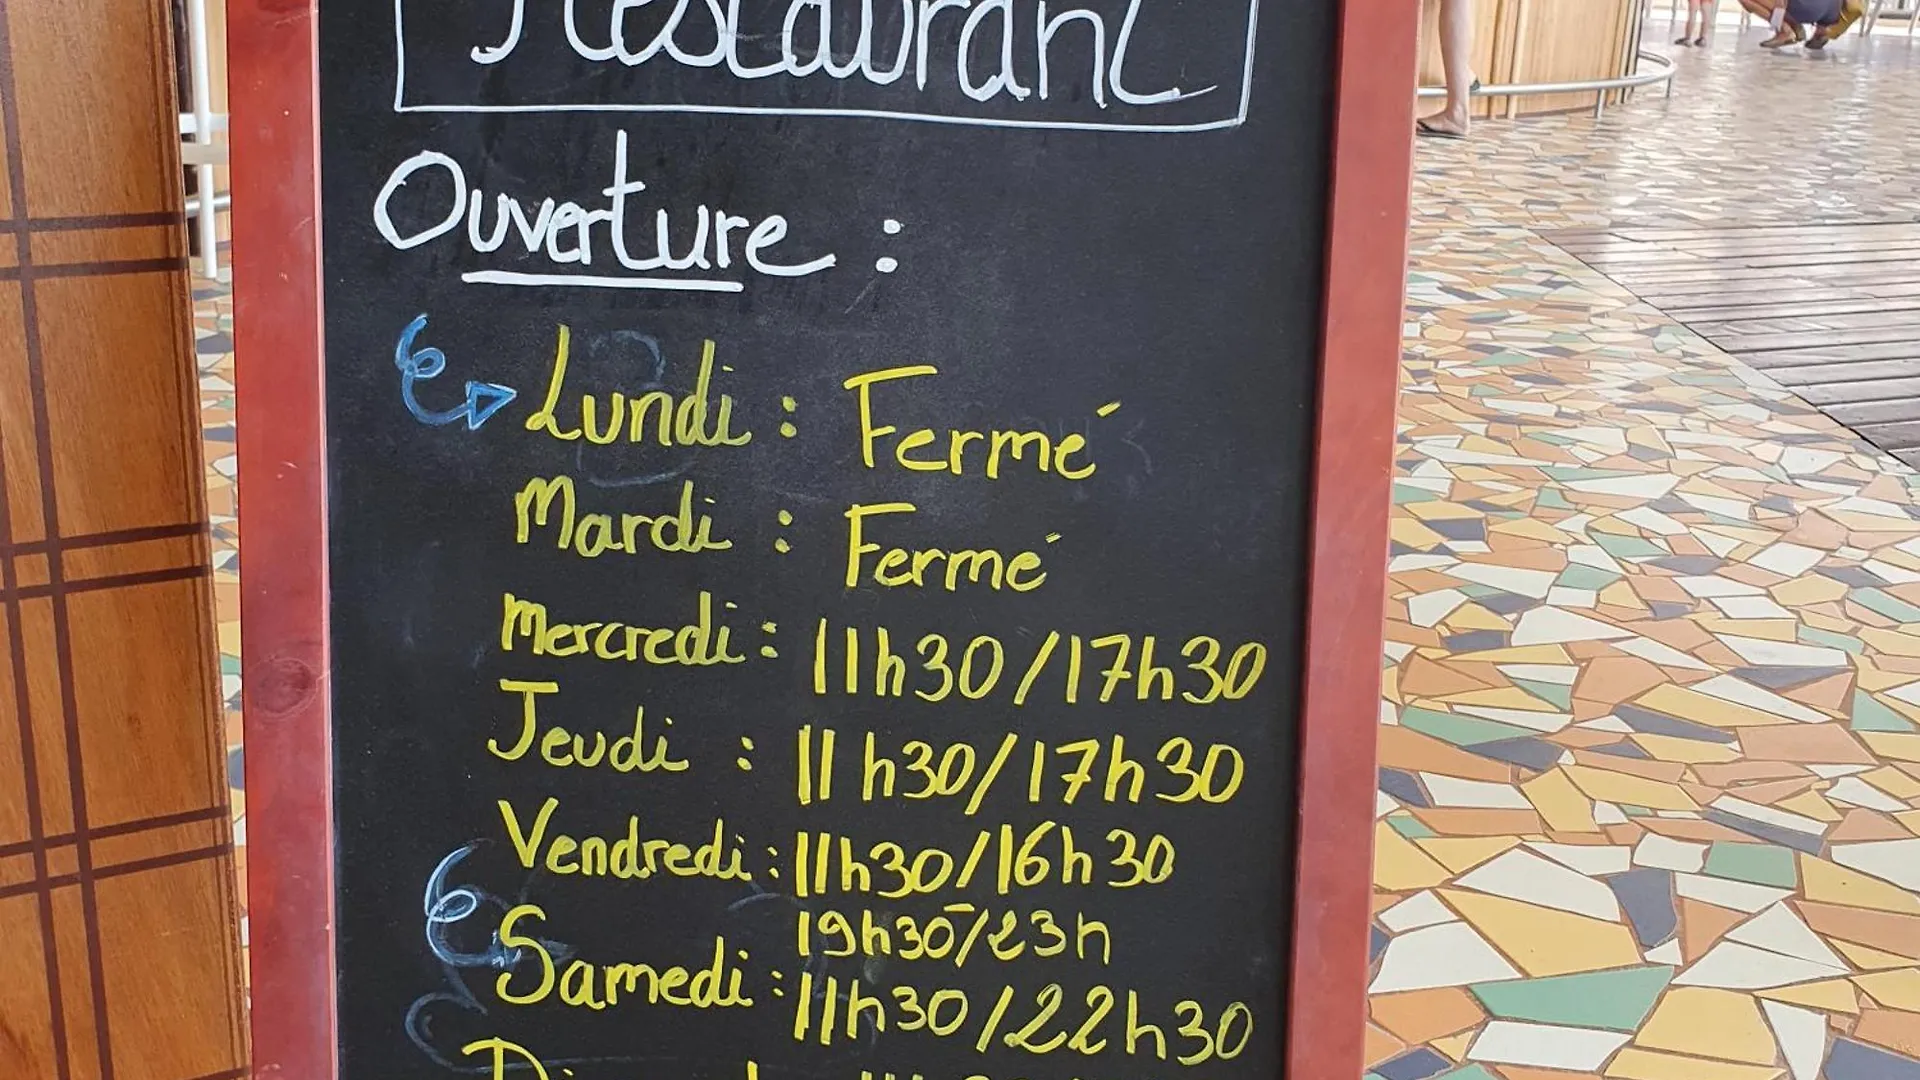 Restaurant
Ouverture :
Lundi : Fermé
Mardi : Fermé
Mercredi : 11h30/17h30
Jeudi : 11h30/17h30
Vendredi : 11h30/16h30
19h30/23h
Samedi : 11h30/22h30